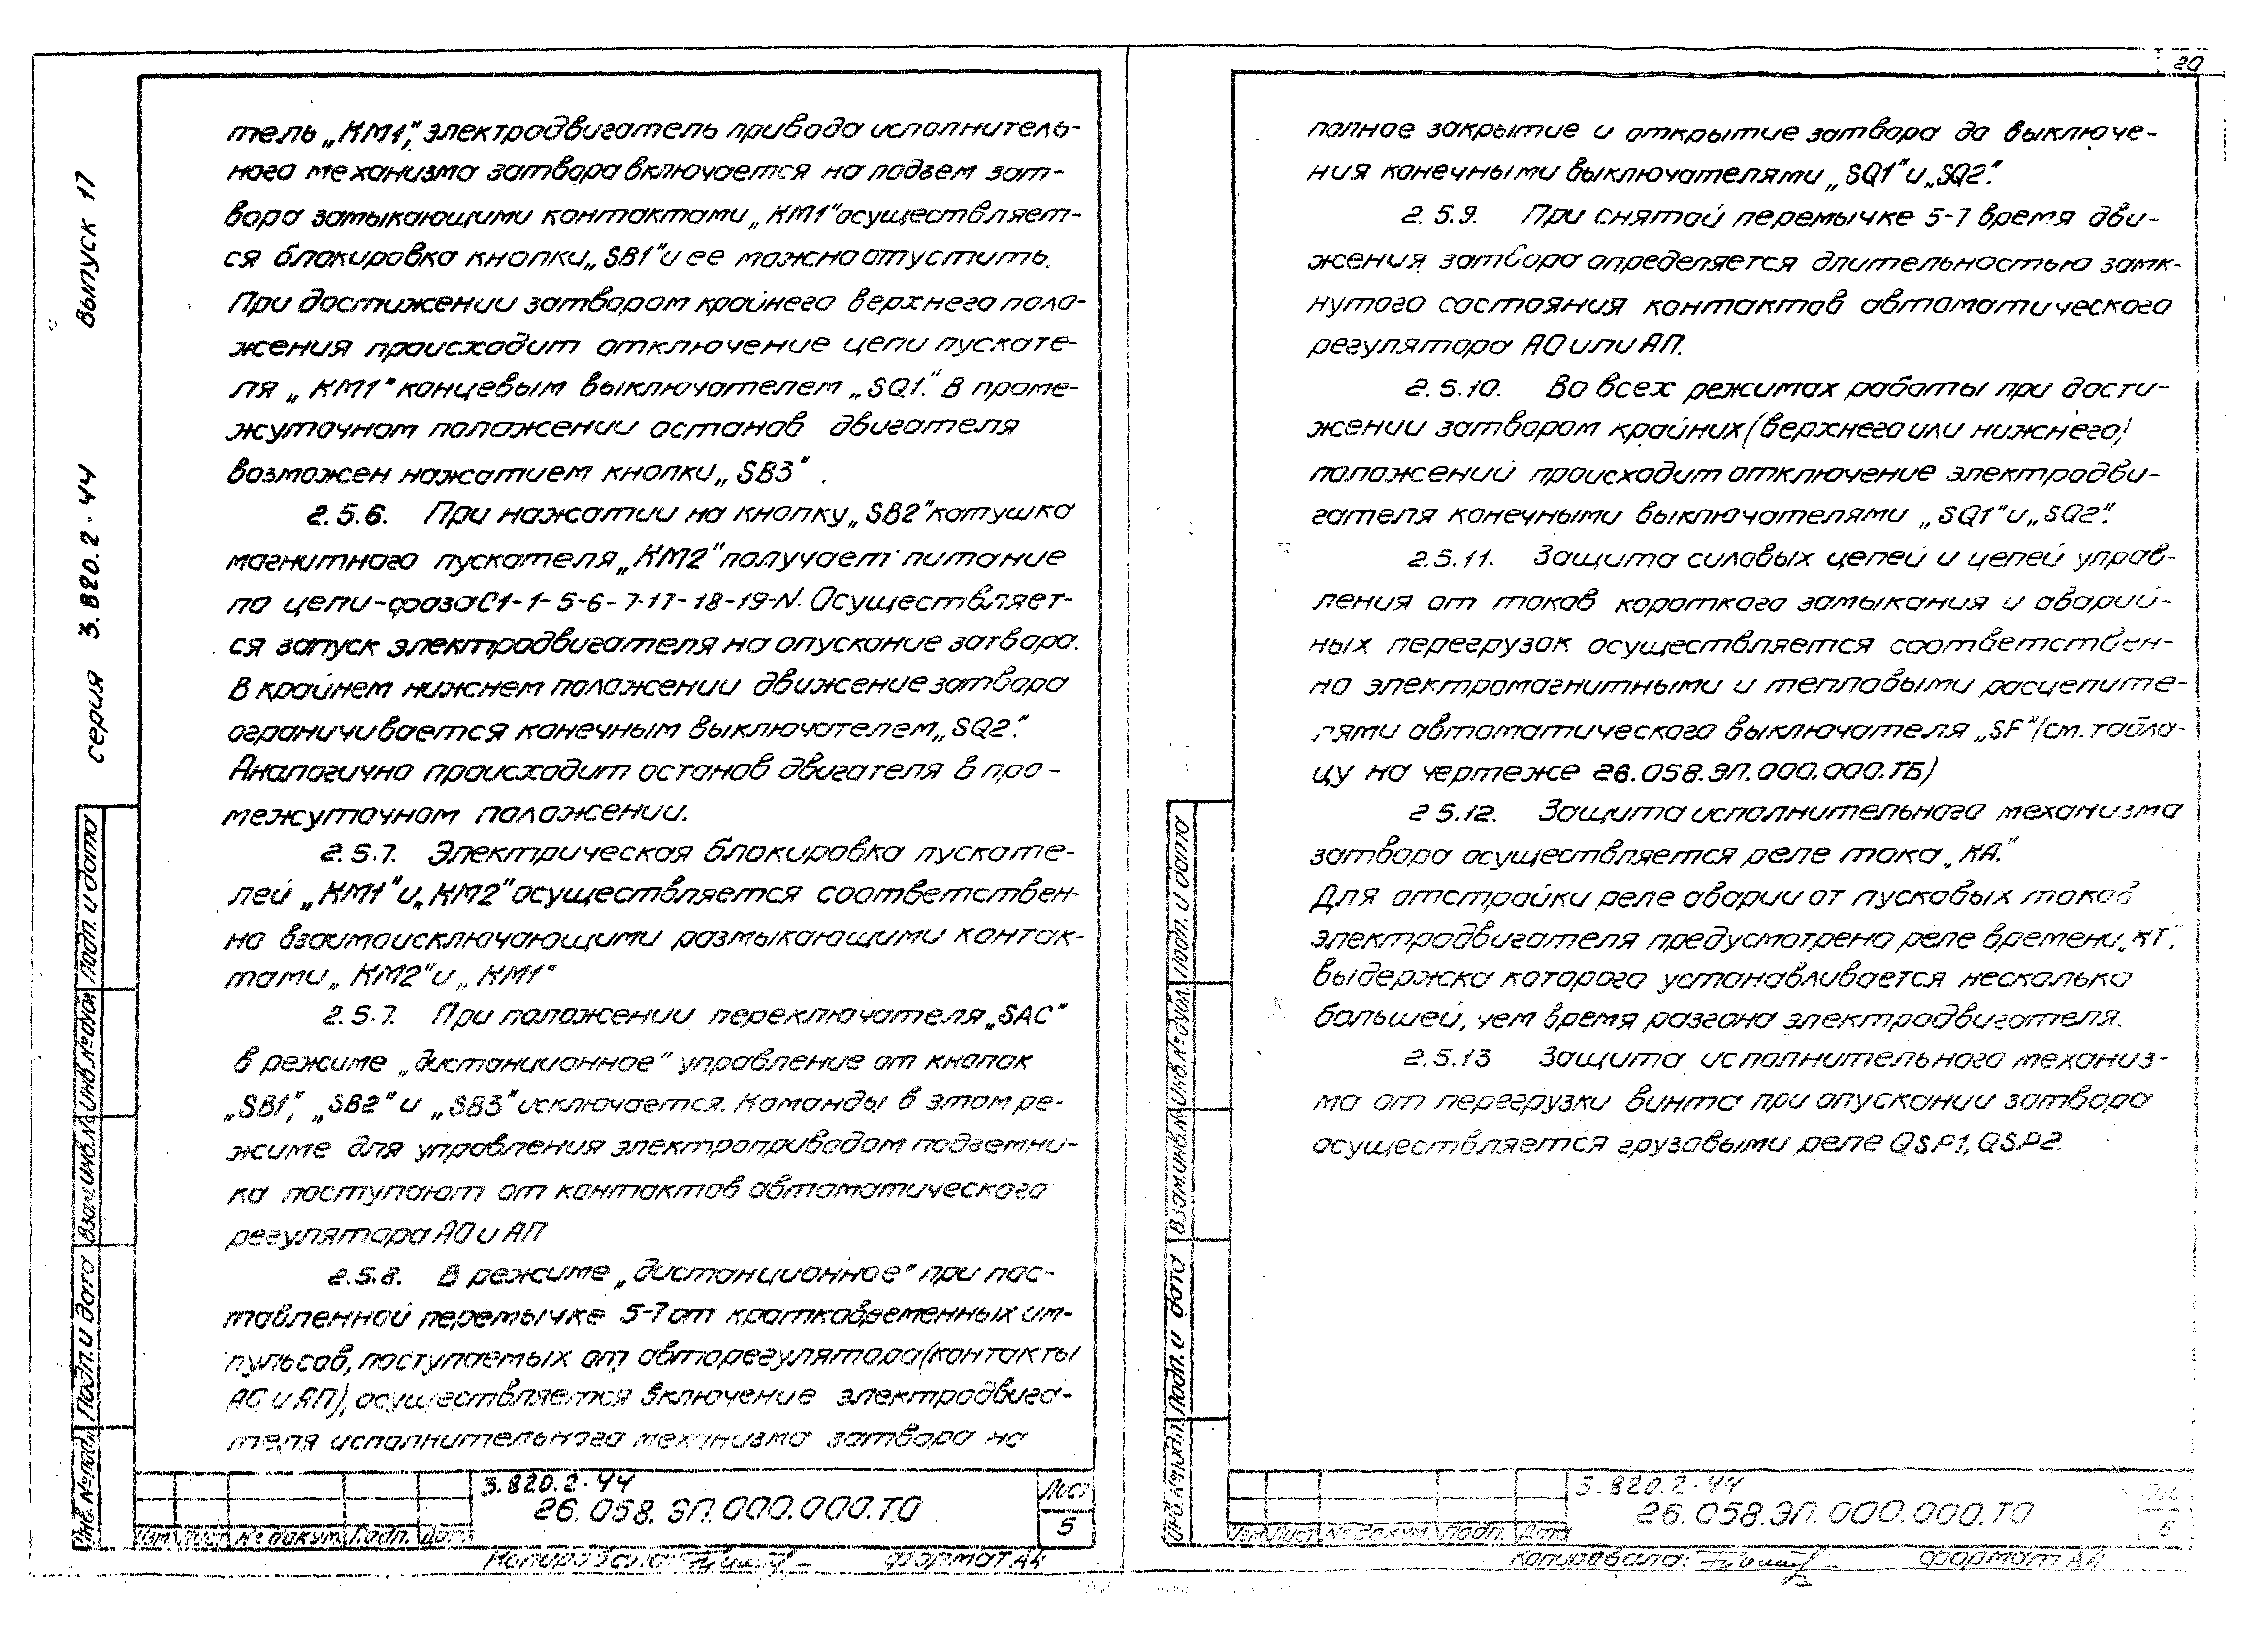 20
серия 3.820.2-44 Выпуск 17
тель „КМ1”, электродвигатель привода исполнитель-
ного механизма затвора включается на подъем зат-
вора замыкающими контактами „КМ1” осуществляет-
ся блокировка кнопки „SB1” и ее можно отпустить.
При достижении затвором крайнего верхнего поло-
жения происходит отключение цепи пускате-
ля „КМ1” концевым выключателем „SQ1”. В проме-
жуточном положении останов двигателя
возможен нажатием кнопки „SB3”.
2.5.6. При нажатии на кнопку „SB2” катушка
магнитного пускателя „КМ2” получает питание
по цепи-фаза С1-1-5-6-7-17-18-19-N. Осуществляет-
ся запуск электродвигателя на опускание затвора.
В крайнем нижнем положении движение затвора
ограничивается конечным выключателем „SQ2”.
Аналогично происходит останов двигателя в про-
межуточном положении.
2.5.7. Электрическая блокировка пускате-
лей „КМ1” и „КМ2” осуществляется соответствен-
но взаимоисключающими размыкающими контак-
тами „КМ2” и „КМ1”
2.5.7. При положении переключателя „SAC”
в режиме „дистанционное” управление от кнопок
„SB1”, „SB2” и „SB3” исключается. Команды в этом ре-
жиме для управления электроприводом подъемни-
ка поступают от контактов автоматического
регулятора АО и АП
2.5.8. В режиме „дистанционное” при пос-
тавленной перемычке 5-7 от кратковременных им-
пульсов, поступаемых от авторегулятора (контакты
АО и АП), осуществляется включение электродвига-
теля исполнительного механизма затвора на
Инв.№ подл. Подп. и дата Взам.инв.№ Инв.№ дубл. Подп. и дата
3.820.2-44
26.058.ЭП.000.000.ТО
Лист
5
Изм Лист № докум. Подп. Дата
Копировала: формат А4
полное закрытие и открытие затвора до выключе-
ния конечными выключателями „SQ1” и „SQ2”.
2.5.9. При снятой перемычке 5-7 время дви-
жения затвора определяется длительностью замк-
нутого состояния контактов автоматического
регулятора АО или АП.
2.5.10. Во всех режимах работы при дости-
жении затвором крайних (верхнего или нижнего)
положений происходит отключение электродви-
гателя конечными выключателями „SQ1” и „SQ2”.
2.5.11. Защита силовых цепей и цепей управ-
ления от токов короткого замыкания и аварий-
ных перегрузок осуществляется соответствен-
но электромагнитными и тепловыми расцепите-
лями автоматического выключателя „SF” (см. табли-
цу на чертеже 26.058.ЭП.000.000.ТБ)
2.5.12. Защита исполнительного механизма
затвора осуществляется реле тока „КА”.
Для отстройки реле аварии от пусковых токов
электродвигателя предусмотрено реле времени „КТ”,
выдержка которого устанавливается несколько
большей, чем время разгона электродвигателя.
2.5.13 Защита исполнительного механиз-
ма от перегрузки винта при опускании затвора
осуществляется грузовыми реле QSP1, QSP2.
Инв.№ подл. Подп. и дата Взам.инв.№ Инв.№ дубл. Подп. и дата
3.820.2-44
26.058.ЭП.000.000.ТО
Лис
6
Изм Лист № докум. Подп. Дата
Копировала: формат А4